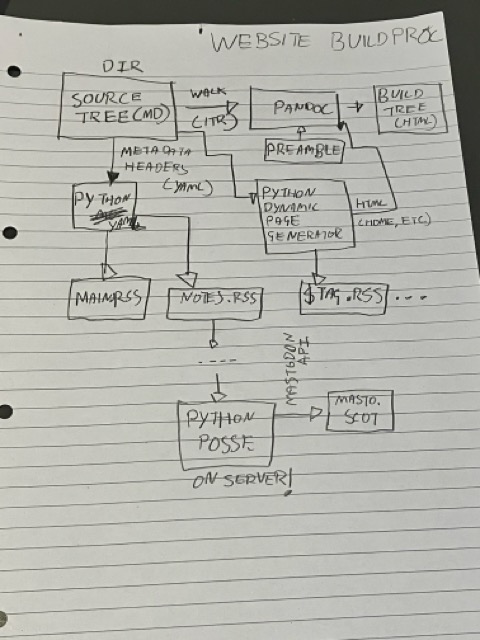 WEBSITE BUILD PROC
DIR
SOURCE
TREE (MD)
WALK
(ITR)
PANDOC
BUILD
TREE
(HTML)
PREAMBLE
METADATA
HEADERS
(YAML)
PYTHON
YAML
PYTHON
DYNAMIC
PAGE
GENERATOR
HTML
(HOME, ETC)
MAIN.RSS
NOTES.RSS
$TAG.RSS ...
....
MASTODON
API
PYTHON
POSSE
MASTO.
SCOT
ON SERVER!